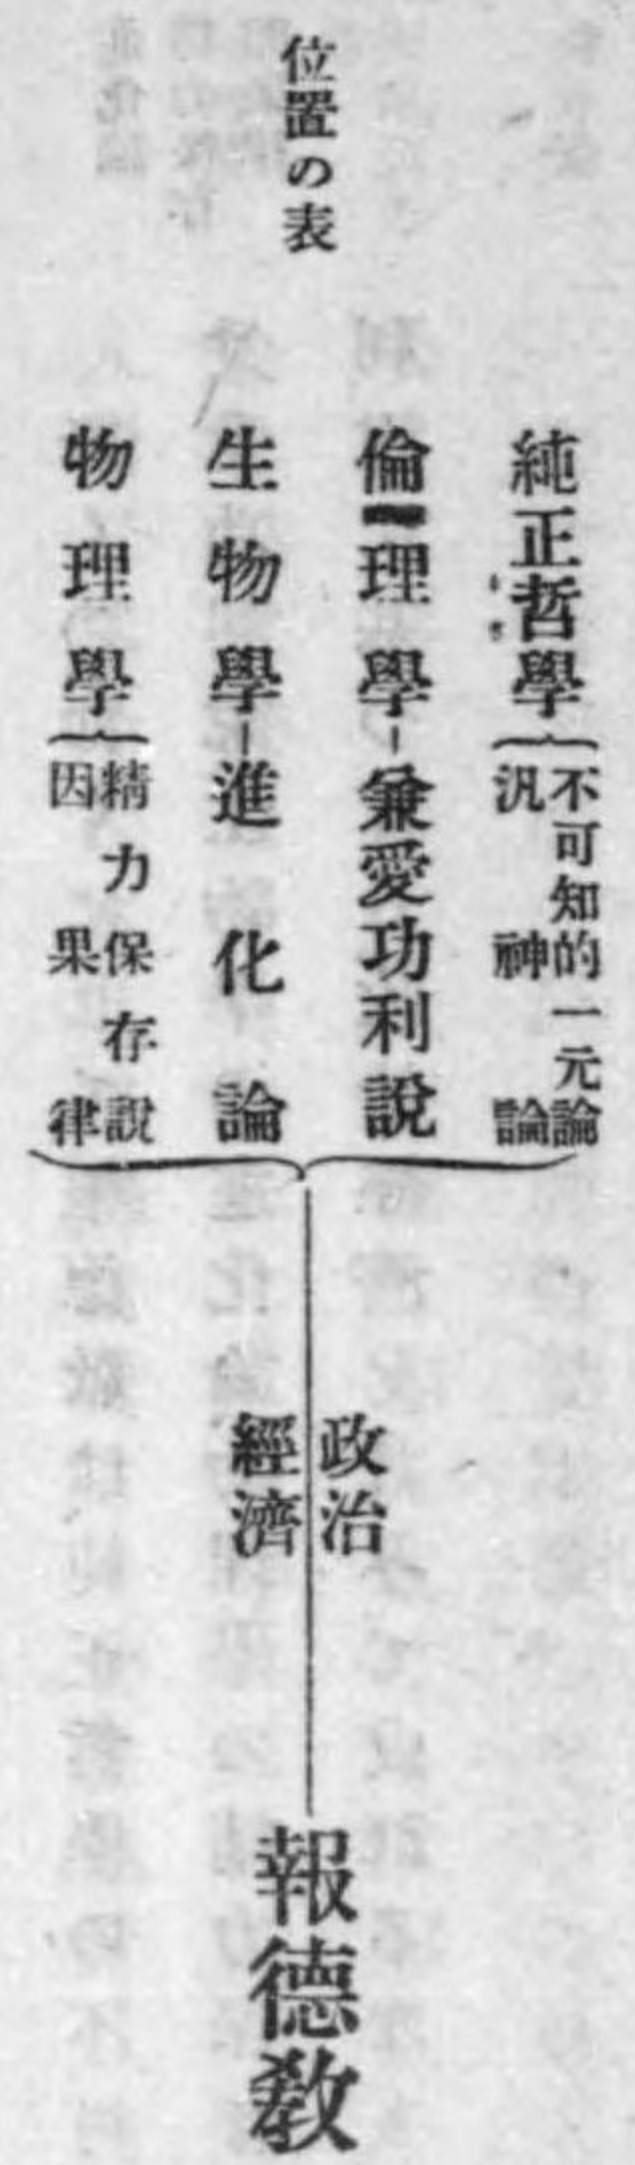 位置の表
純正哲學
不可知的一元論
汎神論
倫理學
兼愛功利說
生物學
進化論
物理學
精力保存說
因果律
政治
經濟
報德教